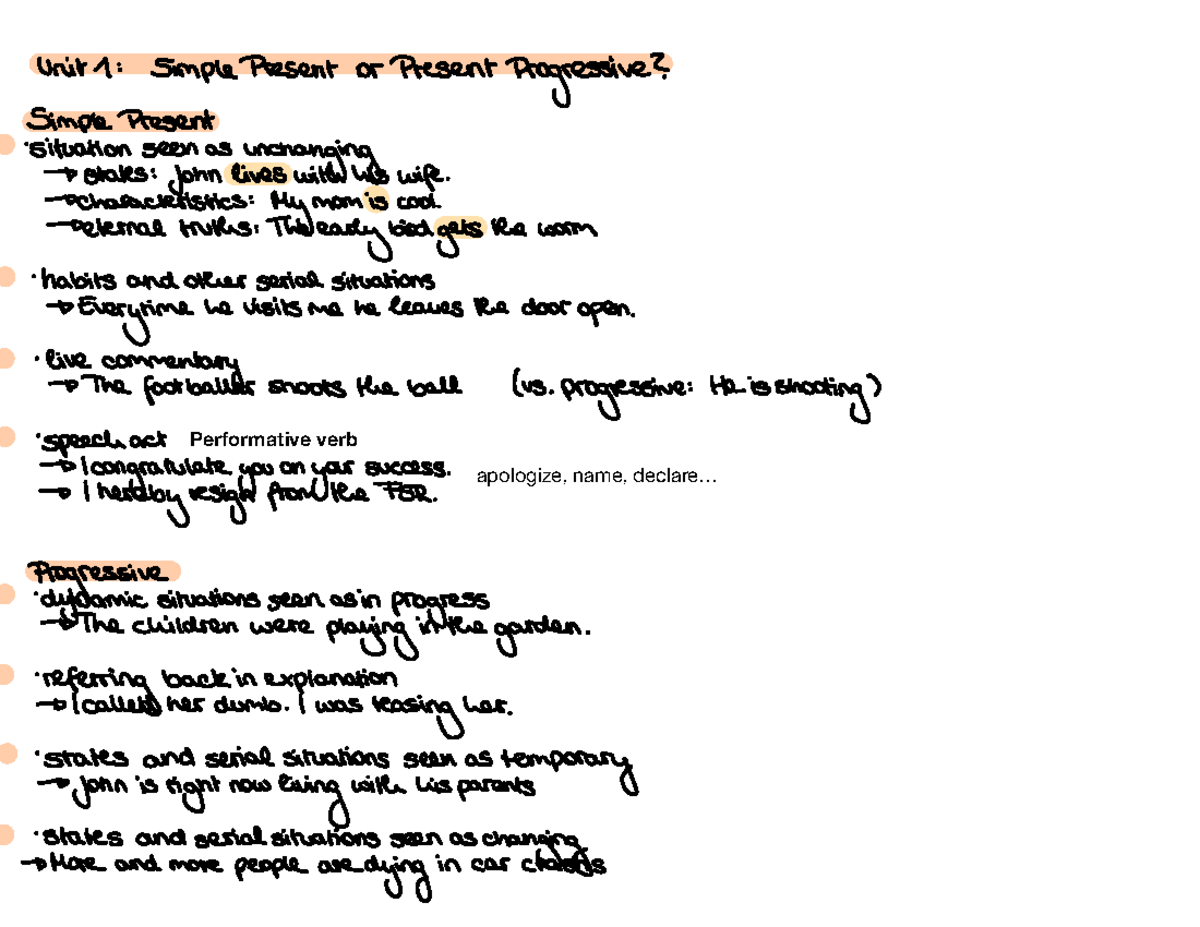 Unit 1: Simple Present or Present Progressive?
Simple Present
· situation seen as unchanging
→ states: John lives with his wife.
→ characteristics: My mom is cool.
→ eternal truths: The early bird gets the worm
· habits and other serial situations
→ Everytime he visits me he leaves the door open.
· live commentary
→ The footballer shoots the ball (vs. progressive: He is shooting)
· speech act Performative verb
→ I congratulate you on your success.
apologize, name, declare…
→ I hereby resign from the FSR.
Progressive
· dynamic situations seen as in progress
→ The children were playing in the garden.
· referring back in explanation
→ I called her dumb. I was teasing her.
· states and serial situations seen as temporary
→ John is right now living with his parents
· states and serial situations seen as changing
→ More and more people are dying in car